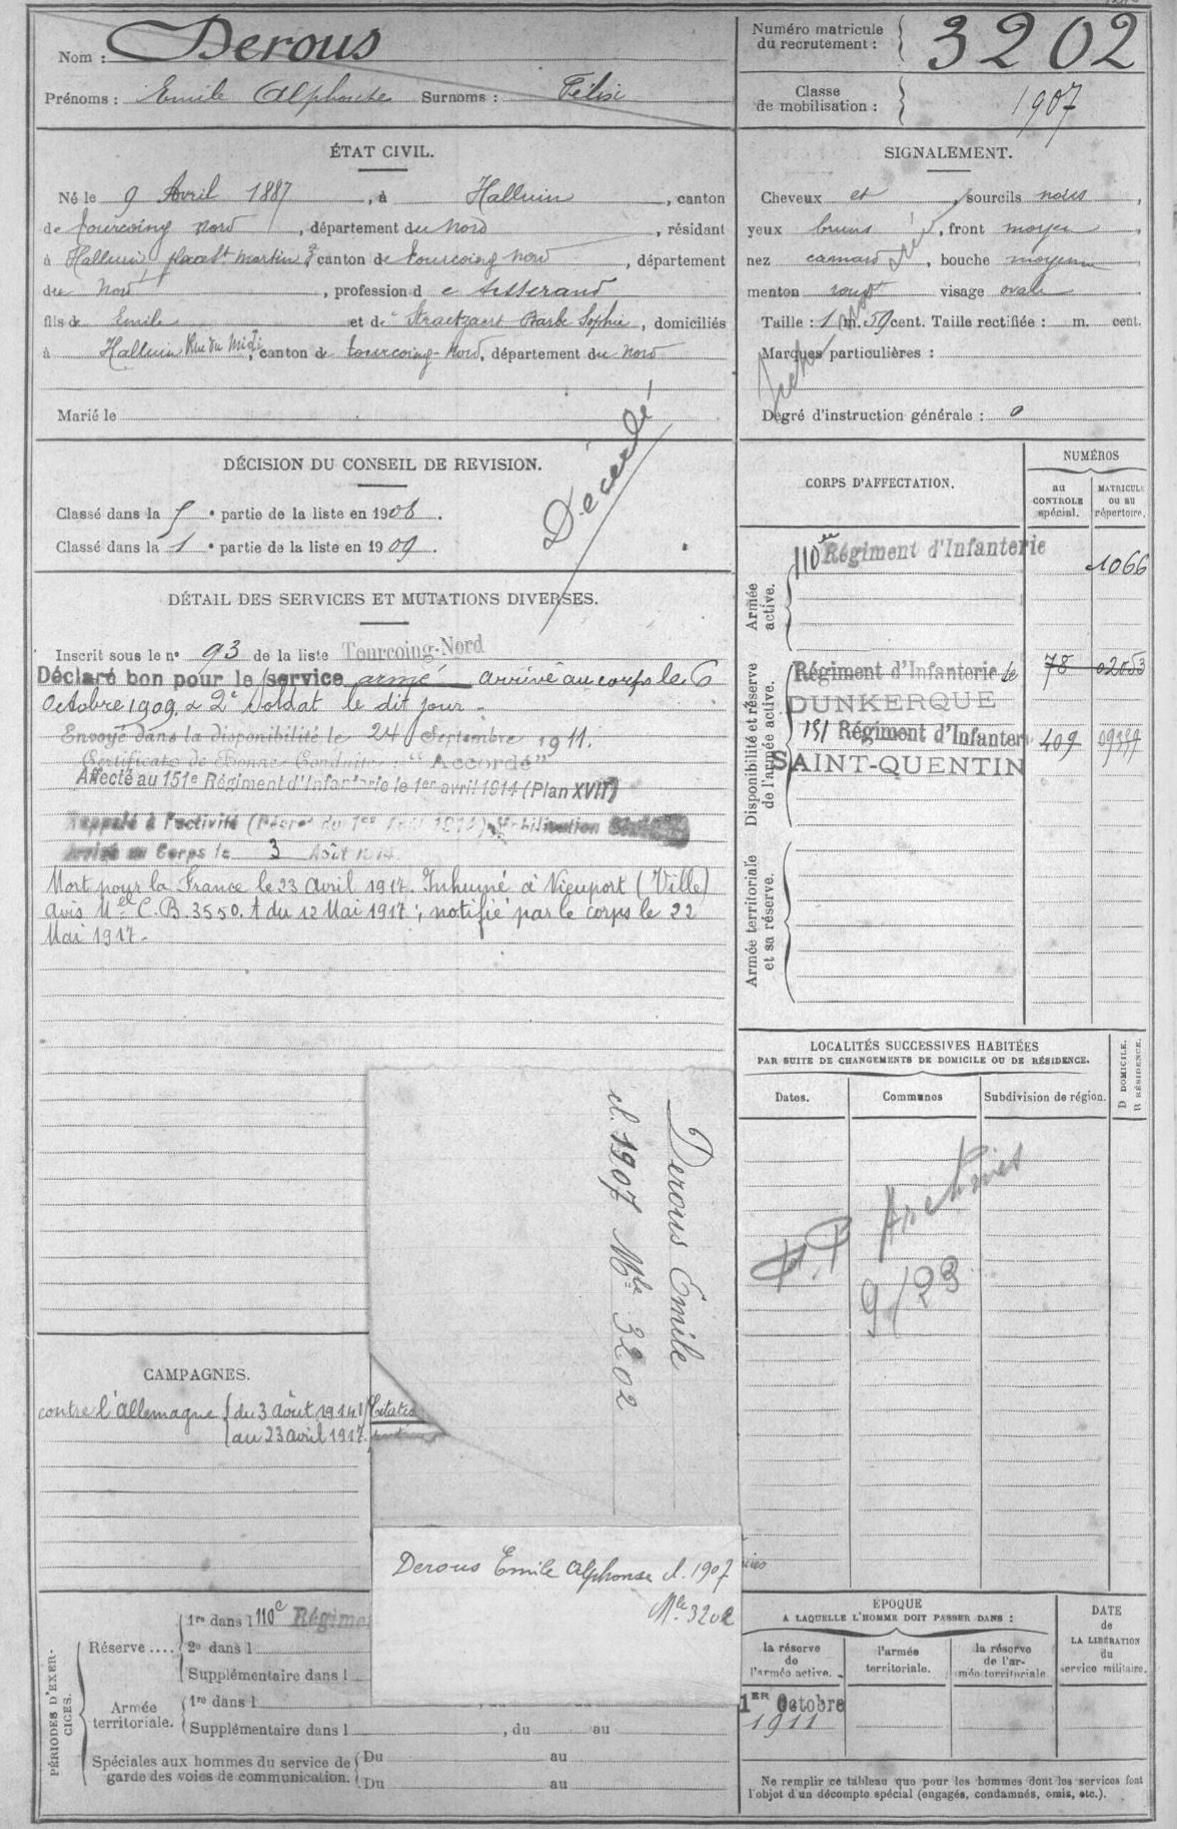 Nom : Derous
Prénoms : Emile Alphonse Surnoms : Félix
Numéro matricule
du recrutement : 3202
Classe
de mobilisation : 1907
ÉTAT CIVIL.
Né le 9 Avril 1887, à Halluin, canton
de Tourcoing Nord, département du Nord, résidant
à Halluin place St Martin canton de Tourcoing Nord, département
du Nord, profession d e tisserand
fils de Emile et de Straetzaert Barbe Sophie, domiciliés
à Halluin Rue du Midi, canton de Tourcoing-Nord, département du Nord
Marié le
SIGNALEMENT.
Cheveux et, sourcils noirs,
yeux bruns, front moyen,
nez camard, bouche moyenne
menton rond visage ovale
Taille : 1 m. 59 cent. Taille rectifiée : m. cent.
Marques particulières :
Degré d'instruction générale : 0
Décédé
DÉCISION DU CONSEIL DE REVISION.
Classé dans la 5e partie de la liste en 1908.
Classé dans la 1e partie de la liste en 1909.
DÉTAIL DES SERVICES ET MUTATIONS DIVERSES.
Inscrit sous le n° 93 de la liste Tourcoing-Nord
Déclaré bon pour le service armé arrivé au corps le 6
Octobre 1909, 2e Soldat le dit jour.
Envoyé dans la disponibilité le 24 Septembre 1911.
Certificat de Bonne Conduite : "Accordé"
Affecté au 151e Régiment d'Infanterie le 1er avril 1914 (Plan XVII)
Rappelé à l'activité (Décret du 1er Août 1914) Mobilisation
Arrivé au Corps le 3 Août 1914
Mort pour la France le 23 avril 1917. Inhumé à Nieuport (Ville)
avis Mel C.B. 3550. A du 12 Mai 1917; notifié par le corps le 22
Mai 1917.
CORPS D'AFFECTATION.
NUMÉROS
au
CONTROLE
spécial.
MATRICULE
ou au
répertoire.
Armée
active.
110e Régiment d'Infanterie 1066
Disponibilité et réserve
de l'armée active.
Régiment d'Infanterie de 78 02053
DUNKERQUE
151 Régiment d'Infanterie 409
SAINT-QUENTIN
Armée territoriale
et sa réserve.
LOCALITÉS SUCCESSIVES HABITÉES
PAR SUITE DE CHANGEMENTS DE DOMICILE OU DE RÉSIDENCE.
Dates.
Communes
Subdivision de région.
D DOMICILE.
R RÉSIDENCE.
Archives
9/23
Derous Emile
cl. 1907 Mle 3202
CAMPAGNES.
contre l'allemagne { du 3 août 1914
au 23 avril 1917.
Derous Emile Alphonse cl. 1907
Mle 3202
PÉRIODES D'EXER-
CICES.
Réserve ....
1re dans l 110e Régime
2e dans l
Supplémentaire dans l
Armée
territoriale.
1re dans l
Supplémentaire dans l, du au
Spéciales aux hommes du service de
garde des voies de communication.
Du au
Du au
ÉPOQUE
A LAQUELLE L'HOMME DOIT PASSER DANS :
la réserve
de
l'armée active.
l'armée
territoriale.
la réserve
de l'ar-
mée territoriale
DATE
de
LA LIBÉRATION
du
service militaire.
1ER Octobre
1911
Ne remplir ce tableau que pour les hommes dont les services font
l'objet d'un décompte spécial (engagés, condamnés, omis, etc.).